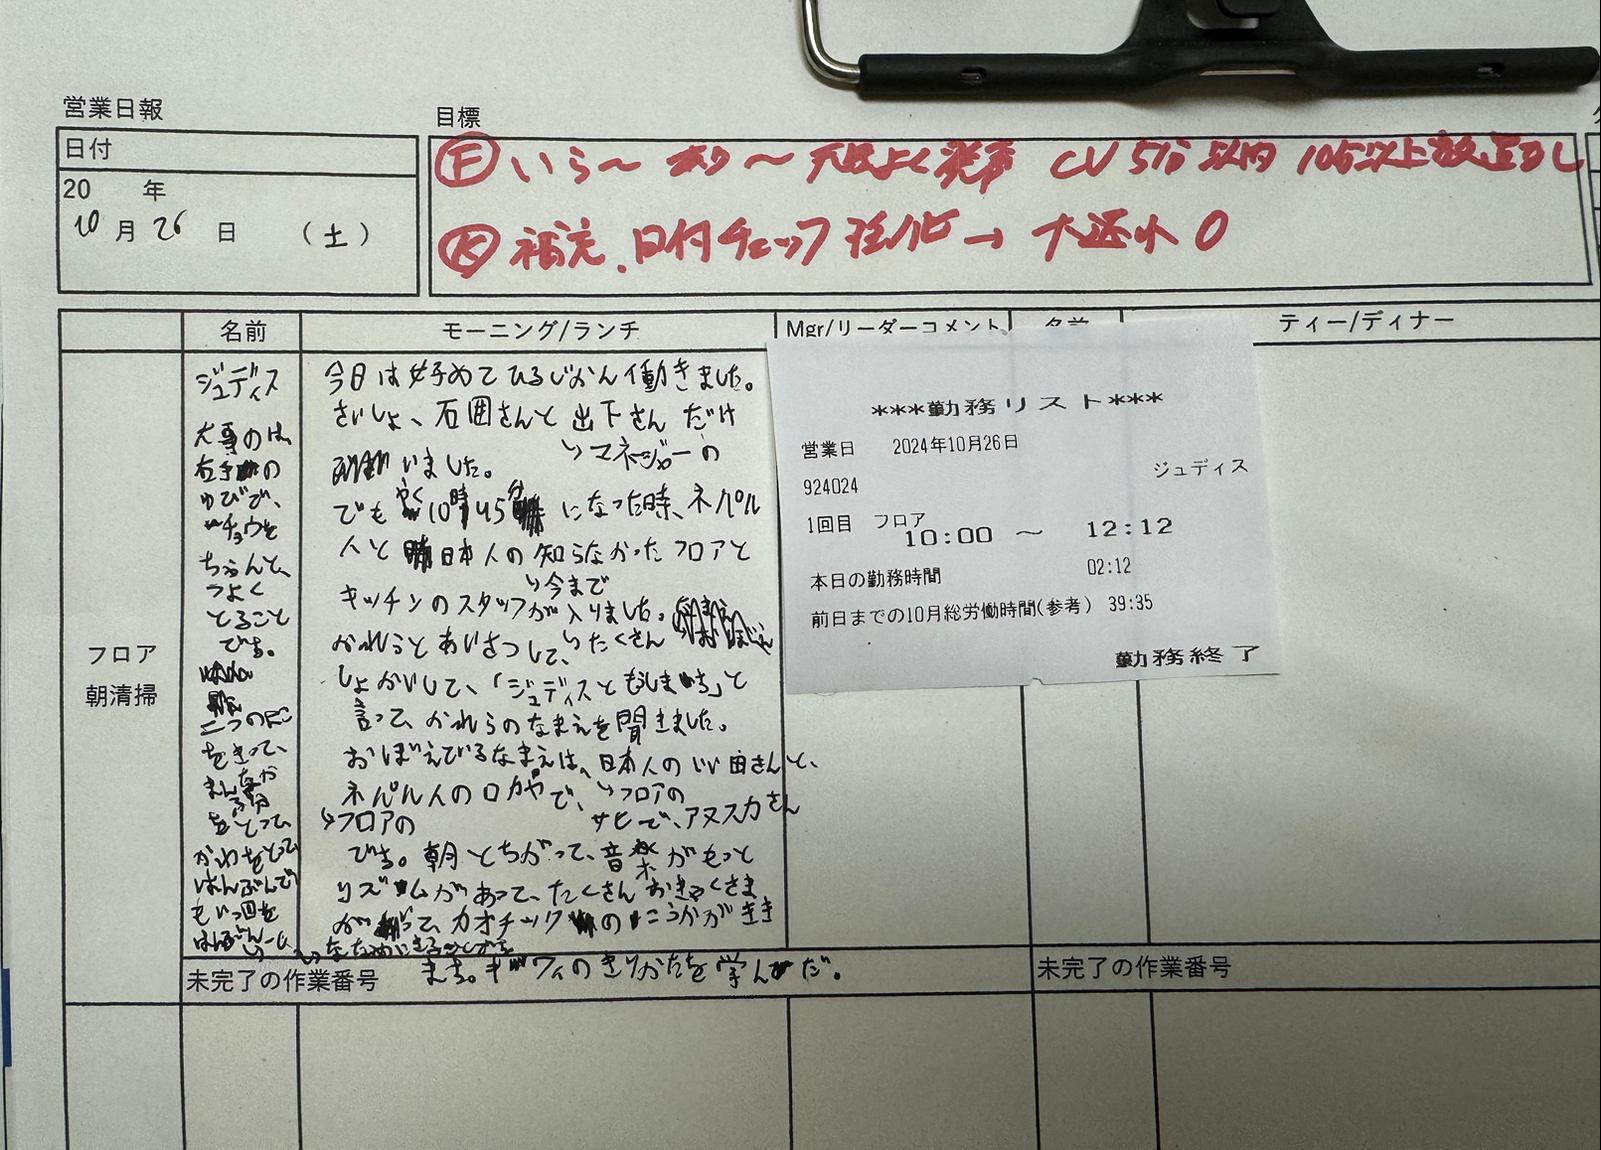 営業日報
日付
20 年
10月 26 日 (土)
目標
Ⓕ いら〜 あり〜 元気よく発声 CU 5分以内 10分以上放置なし
Ⓚ 補充、日付チェック →大還水 0
名前
モーニング/ランチ
Mgr/リーダーコメント
名前
ティー/ディナー
フロア
朝清掃
ジュディス
大事のは、
右手の
ゆびで、
ちゃんと、
つよく
とること
です。
二つの
をきって、
まんなか
部分
をとって、
かわをとって
はんぶんで
もいっ回を
はんぶん
今日は好めてひるじかん働きました。
さいしょ、石囲さんと出下さんだけ
↳マネジャーの
いました。
でも 10時45分 になった時、ネパル
人と 日本人の知らなかったフロアと
↳今まで
キッチンのスタッフが入りました。
かれらとあいさつして、たくさん
しょかいして、「ジュディスともしまち」と
言って、かれらのなまえを聞きました。
おぼえているなまえは、日本人の 田さんと、
ネパル人のロカヤで、↳フロアの
↳フロアの サヒで、アヌスカさん
です。朝とちがって、音楽がもっと
リズムがあって、たくさんおきゃくさま
が て、カオチックの こうかがきき
ます。キウィのきりかたを学んだ。
未完了の作業番号
未完了の作業番号
***勤務リスト***
営業日 2024年10月26日
ジュディス
924024
1回目 フロア
10:00 〜 12:12
本日の勤務時間 02:12
前日までの10月総労働時間(参考) 39:35
勤務終了